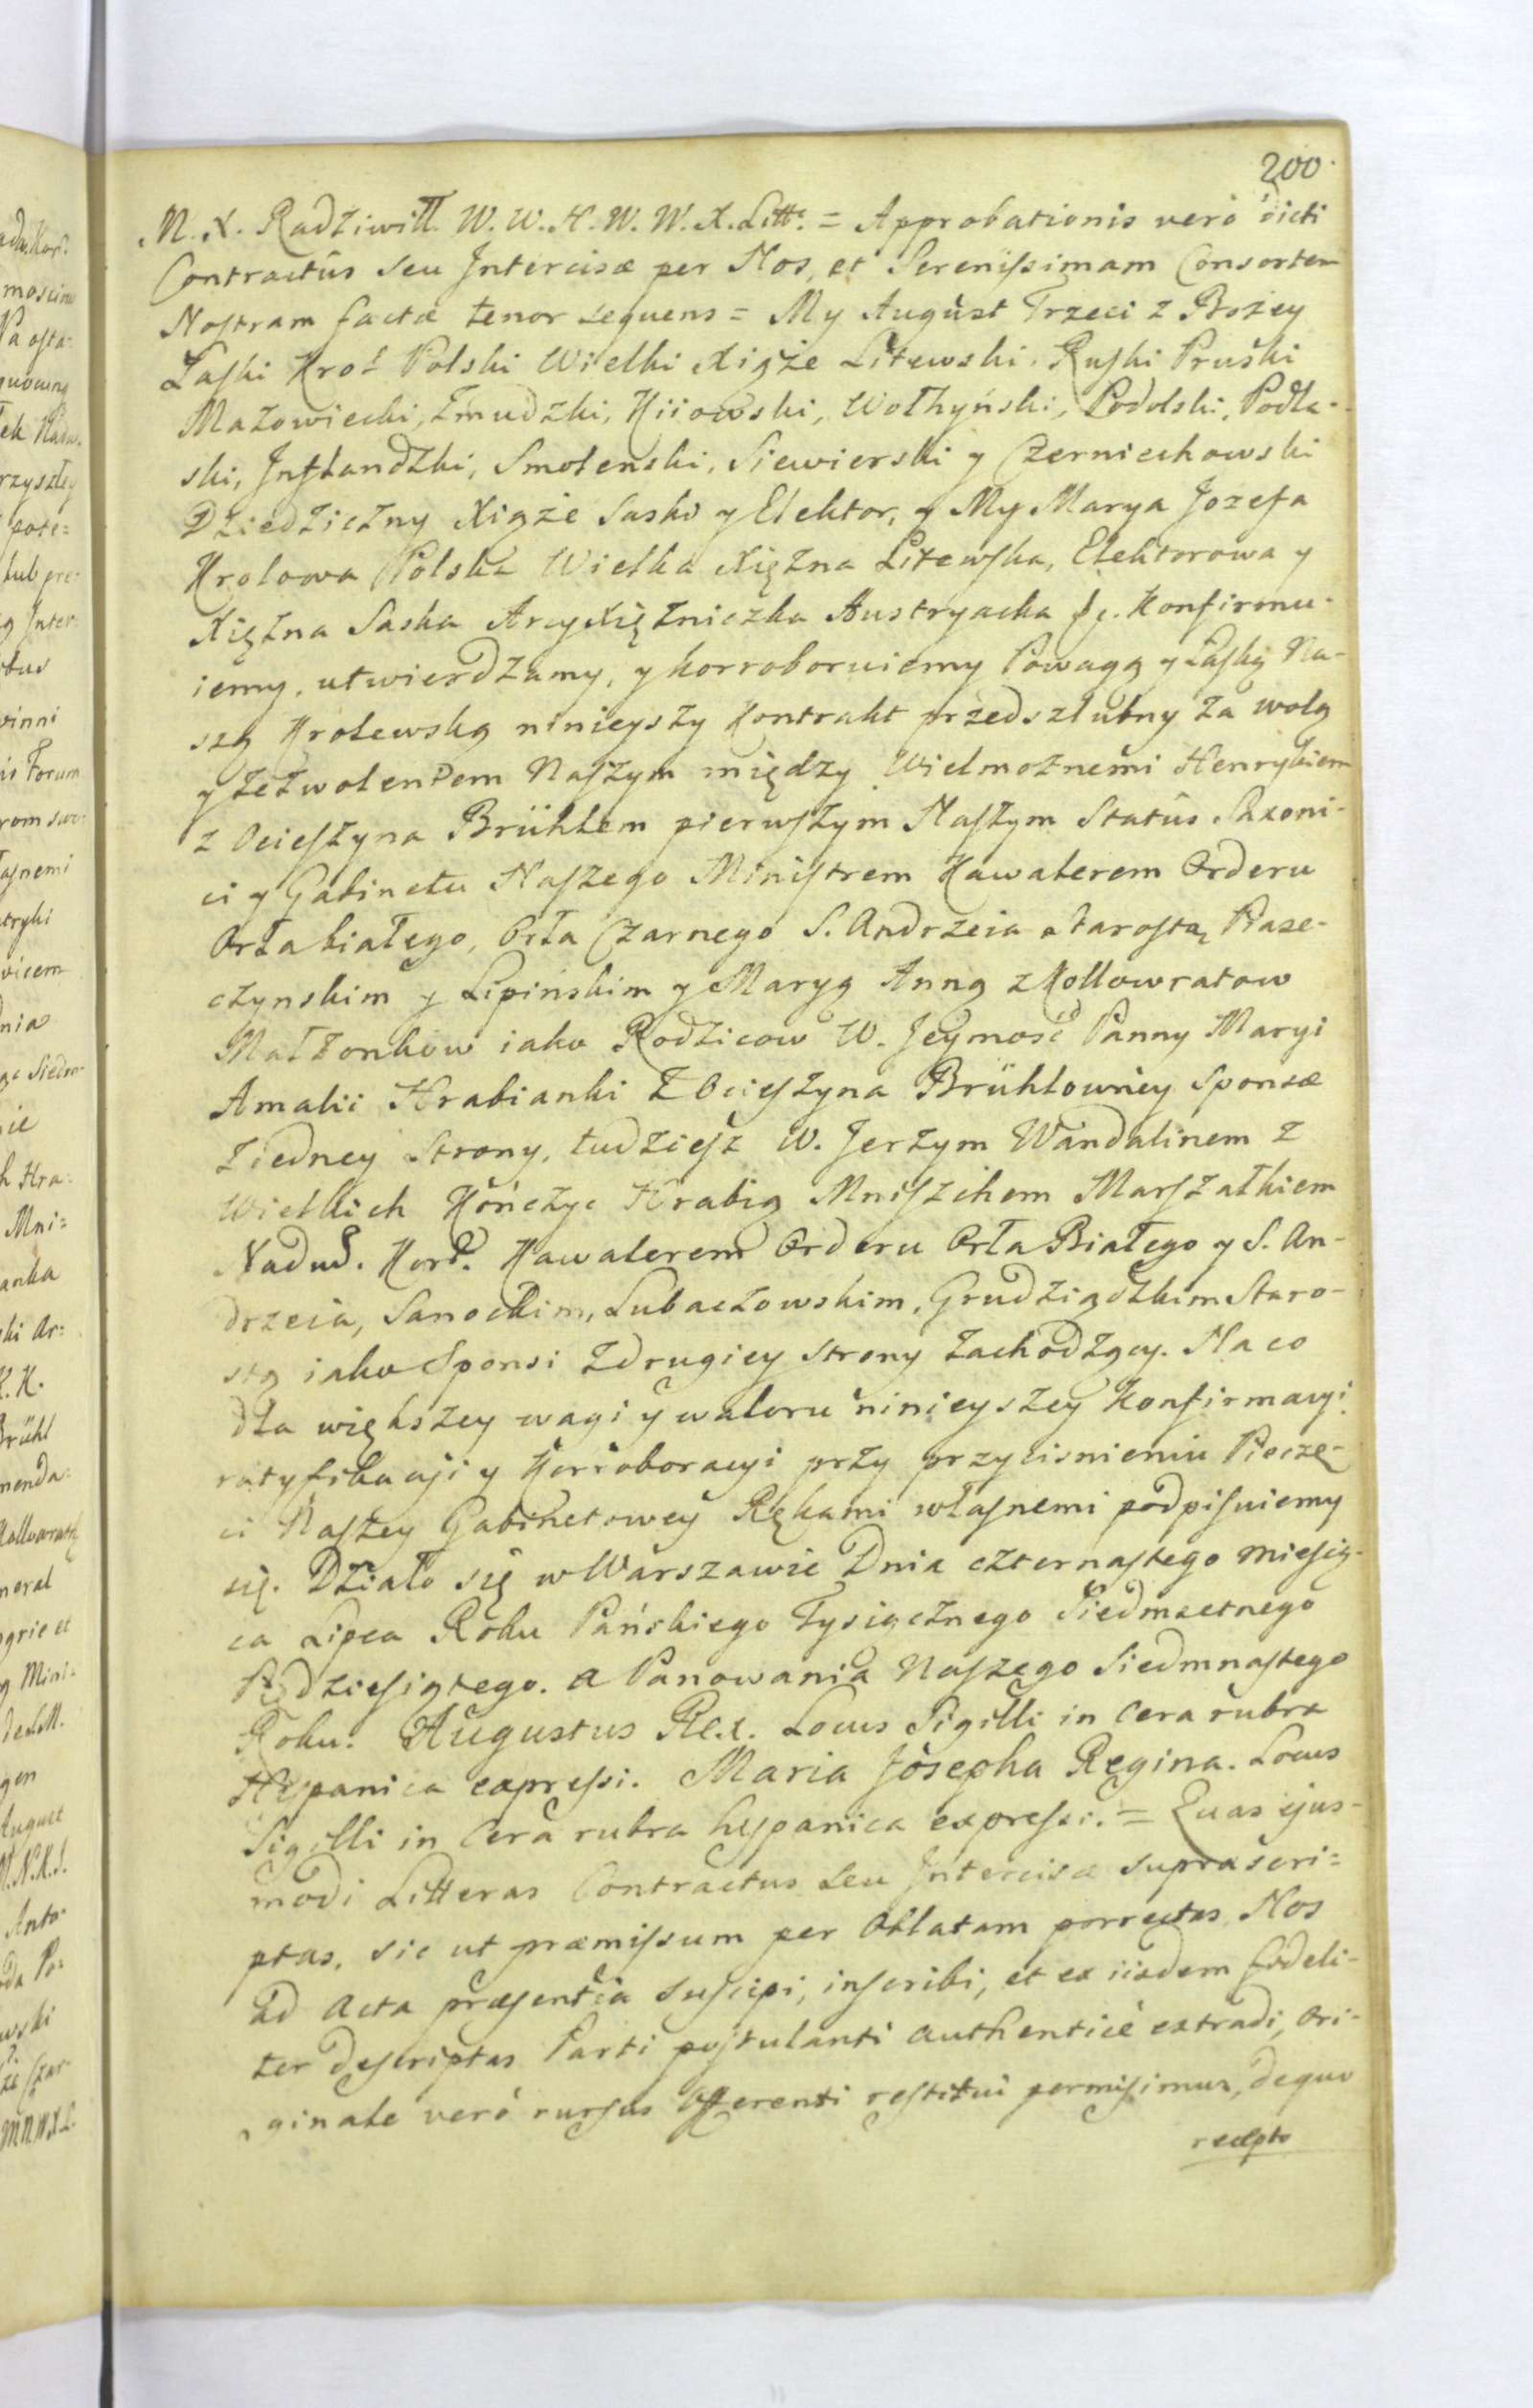 200.
M. X. Radziwiłł. W. W. H. W. W. X. Litt: = Approbationis verò dicti
Contractûs seu Intercisæ per Nos, et Serenissimam Consortem
Nostram factæ tenor sequens = My August Trzeci z Bożey
Łaski Krol Polski Wielki Xiąże Litewski. Ruski Pruski
Mazowiecki, Żmudzki, Kiiowski, Wołhyński, Podolski, Podla-
ski, Inflandzki, Smolenski, Siewierski y Czerniechowski
Dziedziczny Xiąże Saski y Elektor, y My Marya Jozefa
Krolowa Polska Wielka Xiężna Litewska, Elektorowa y
Xiężna Saska ArcyXiężniczka Austryacka &c. Konfirmu-
iemy, utwierdzamy, y korroboruiemy Powagą y Łaską Na-
szą Krolewską ninieyszy Kontrakt przedszlubny za wolą
y zezwoleniem Naszym między Wielmożnemi Henrykiem
z Ocieszyna Brühlem pierwszym Naszym Statûs Saxoni-
ci y Gabinetu Naszego Ministrem Kawalerem Orderu
Orła białego, Orła Czarnego S. Andrzeia Starostą Piase-
czynskim y Lipińskim y Maryą Anną z Kollowratow
Małżonkow iako Rodzicow W. Jeymość Panny Maryi
Amalii Hrabianki z Ocieszyna Brühlowney Sponsæ
z iedney Strony, tudziesz W. Jerzym Wandalinem z
Wielkich Kończyc Hrabią Mniszchem Marszałkiem
Nadw. Kor. Kawalerem Orderu Orła Białego y S. An-
drzeia, Sanockim, Lubaczowskim, Grudziądzkim Staro-
stą iako Sponsi z drugiey strony zachodzący. Na co
dla większey wagi y waloru ninieyszey Konfirmacyi
ratyfikacyi y Korroboracyi przy przycisnieniu Pieczę-
ci Naszey Gabinetowey Rękami własnemi podpisuiemy
się. Działo się w Warszawie Dnia czternastego Miesią-
ca Lipca Roku Pańskiego Tysiącznego Siedmsetnego
Pędziesiątego. a Panowania Naszego Siedmnastego
Roku. Augustus Rex. Locus Sigilli in Cera rubra
Hispanica expressi. Maria Josepha Regina. Locus
Sigilli in Cera rubra hispanica expressi. = Quas ejus-
modi Litteras Contractus seu Intercisæ suprascri=
ptas, sic ut præmissum per Oblatam porrectas, Nos
ad Acta præsentia suscipi, inscribi, et ex iisdem fideli-
ter descriptas Parti postulanti authenticè extradi, Ori-
ginale verò rursus Offerenti restitui permisimus, de quo
recepto